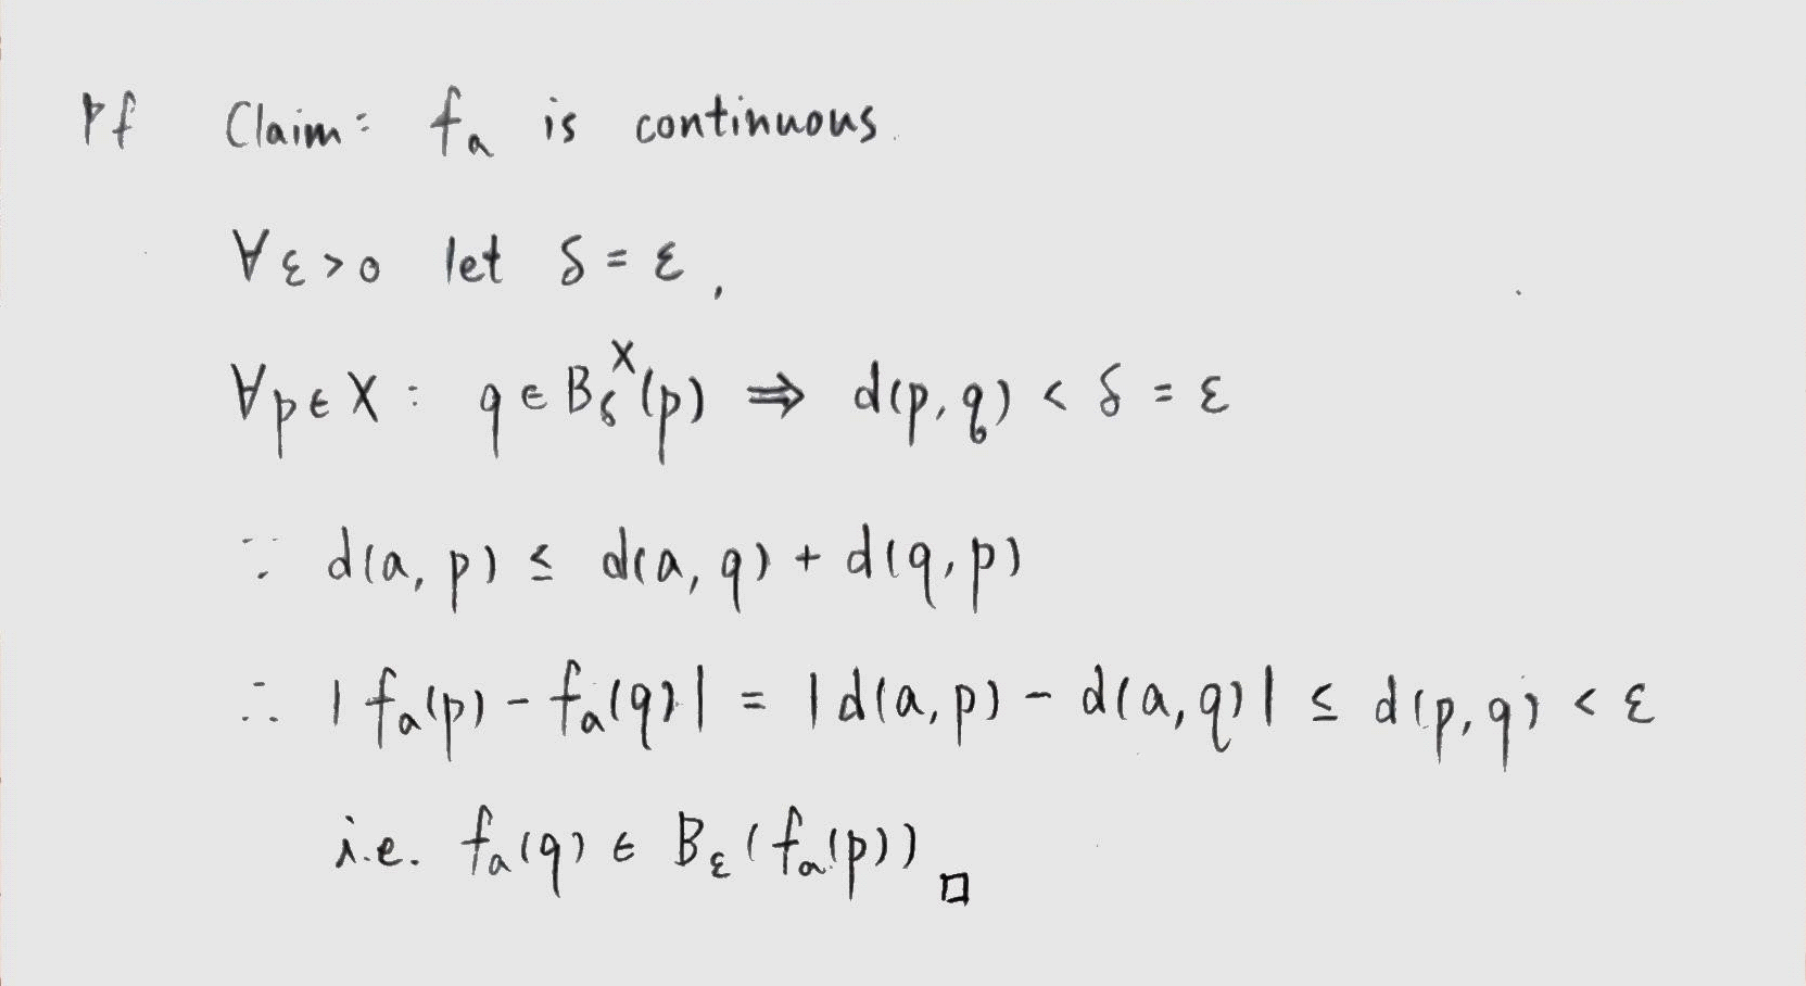 Pf Claim: fₐ is continuous.
∀ε>0 let δ = ε,
∀p∈X : q∈B_δ^X(p) ⇒ d(p,q) < δ = ε
∵ d(a,p) ≤ d(a,q) + d(q,p)
∴ |fₐ(p) - fₐ(q)| = |d(a,p) - d(a,q)| ≤ d(p,q) < ε
i.e. fₐ(q) ∈ B_ε(fₐ(p)) □